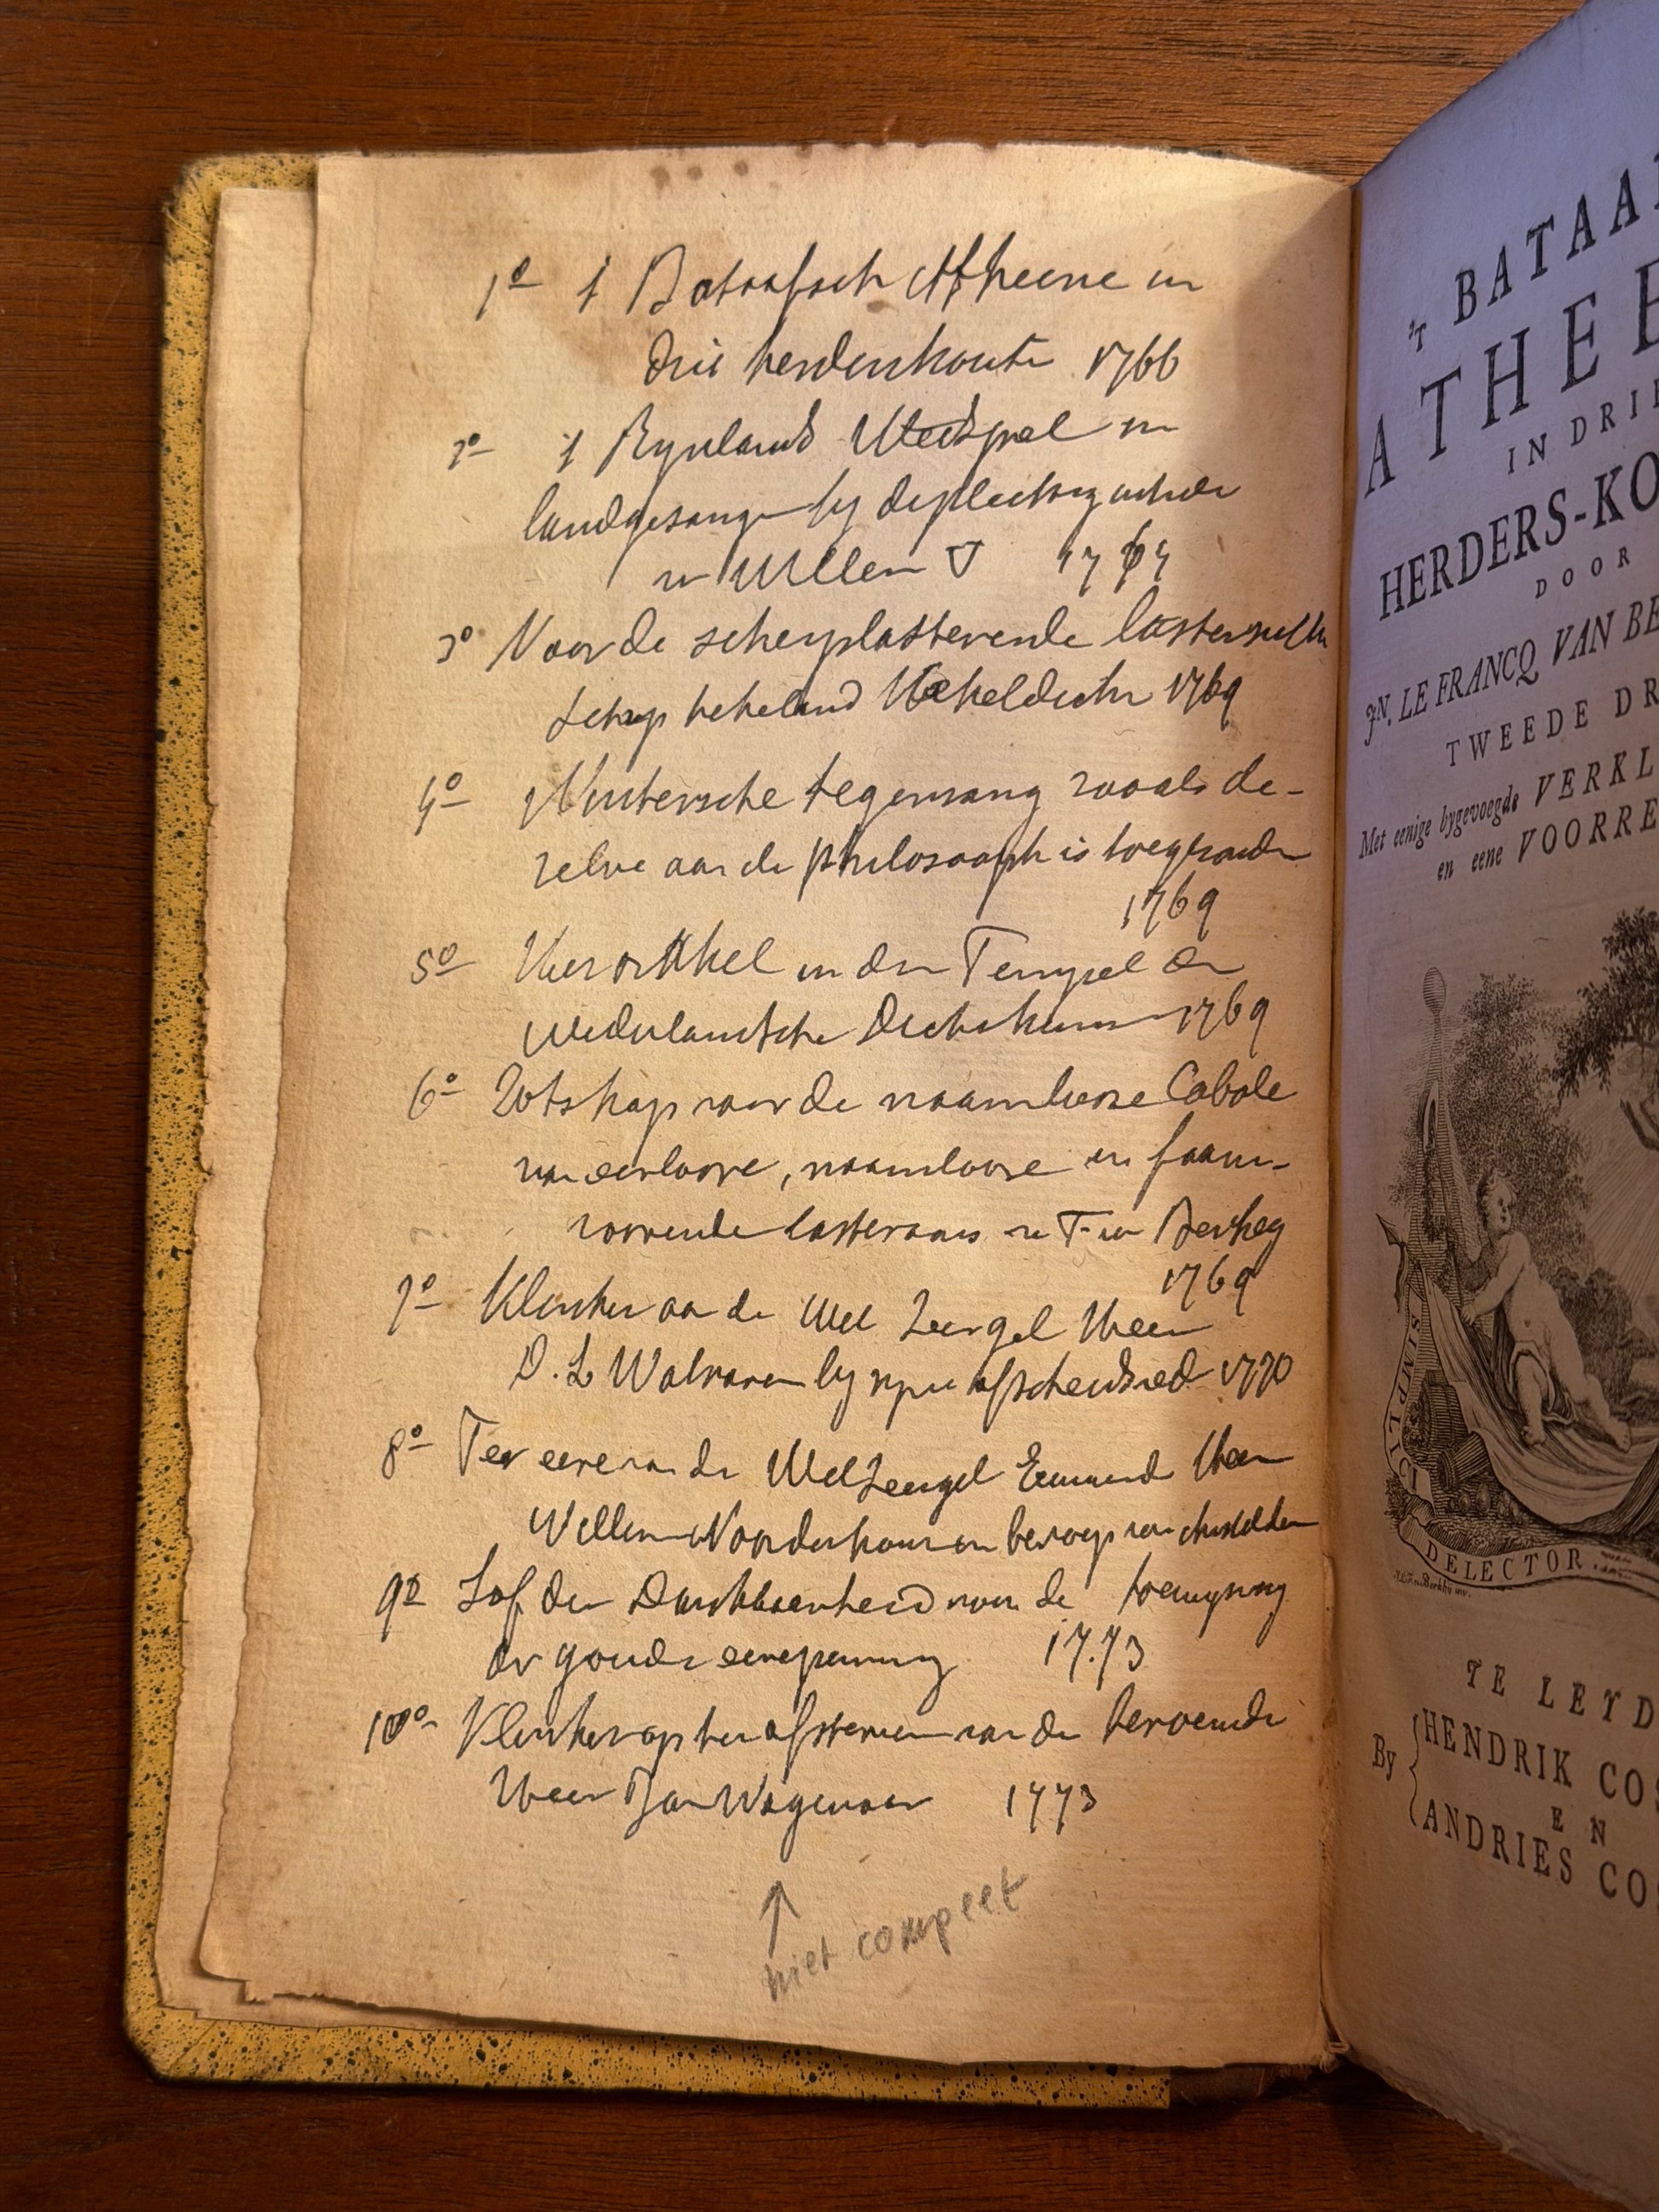 1o 't Bataafsch Atheene in
drie herderskoute 1766
2o 't Rynlands Veldspel in
landgesangen by de plechtige
Willem V
3o Voor de scherplasterende
hekelend Hekeldicht 1769
4o Wintersche tegensang zooals de-
zelve aan de philosooph is toegesonden
1769
5o Het orakel in den Tempel der
Nederlantsche Dichtkunst 1769
6o Zotskap voor de naamlooze Cabale
van eerlooze, naamlooze en faam-
roovende lasteraars van Berkhey
1769
7o Klinker aan de Wel Eerw gel Heer
D. L Walraven by zyne afscheidsrede 1770
8o Ter eere van de Wel Eerw gel Heer
Willem beroep van
9o Lof der Dankbaarheid voor de toewyzing
der goude eerepenning 17.73
10o Klinker op het afsterven van de beroemde
Heer Jan Wagenaar 1773
↑
niet compeet
'T BATAA
ATHEE
IN DRIE
HERDERS-KO
DOOR
JN. LE FRANCQ VAN BE
TWEEDE DR
Met eenige bygevoegde VERKL
en eene VOORRE
SIMPLICI
DELECTOR
TE LEYD
By HENDRIK COS
EN
ANDRIES COS